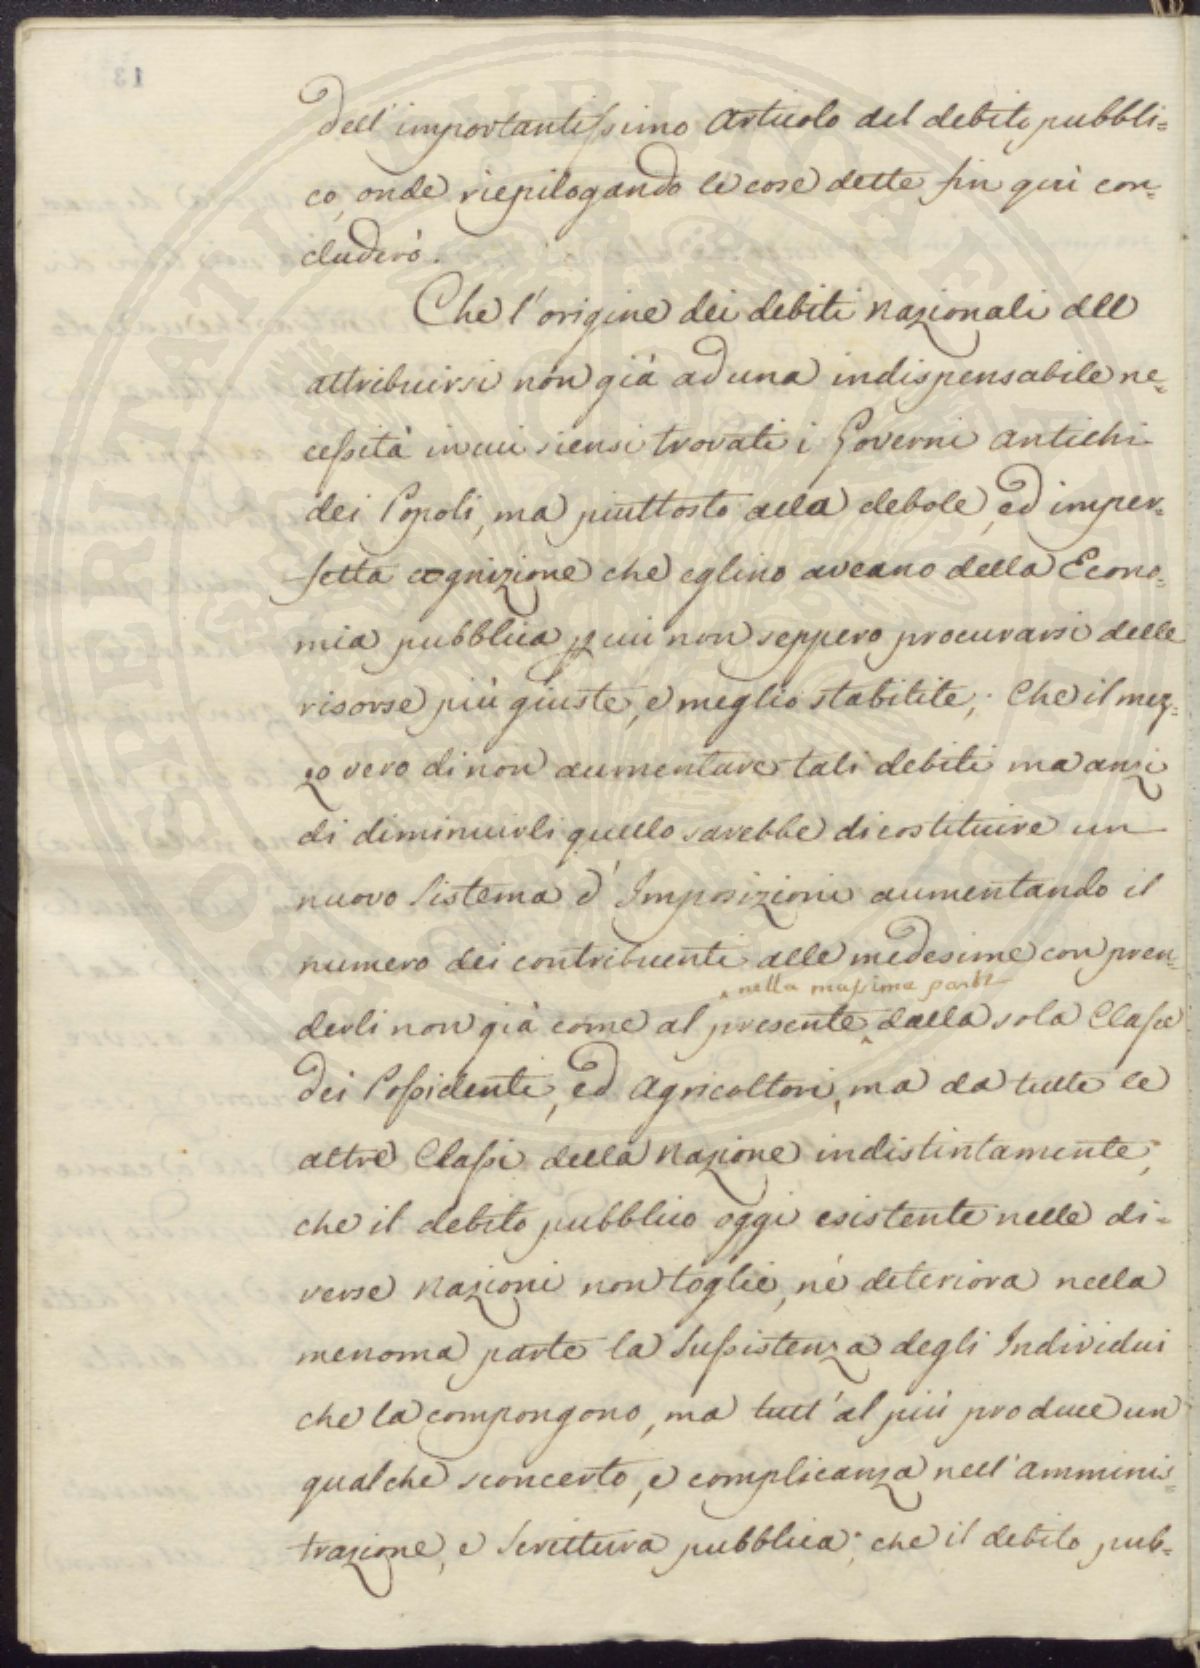 dell'importantissimo Articolo del debito pubbli=
co, onde riepilogando le cose dette fin quì con=
cluderò.
Che l'origine dei debiti Nazionali dee
attribuirsi non già ad una indispensabile ne=
cessità in cui siensi trovati i Governi antichi
dei Popoli, ma piuttosto alla debole, ed imper=
fetta cognizione che eglino aveano della Econo=
mia pubblica, cui non seppero procurarsi delle
risorse più giuste, e meglio stabilite; Che il mez=
zo vero di non aumentare tali debiti ma anzi
di diminuirli quello sarebbe di costituire un
nuovo Sistema d'Imposizioni aumentando il
numero dei contribuenti alle medesime con pren=
nella massima parte
derli non già come al presente dalla sola Classe
dei Possidenti, ed Agricoltori, ma da tutte le
altre Classi della Nazione indistintamente;
che il debito pubblico oggi esistente nelle di=
verse Nazioni non toglie, nè deteriora nella
menoma parte la Sussistenza degli Individui
che la compongono, ma tutt'al più produce un
qualche sconcerto, e complicanza nell'amminis=
trazione, e Scrittura pubblica; che il debito pub=
PROSPERITATI PUBLICAE AUGENDAE
13